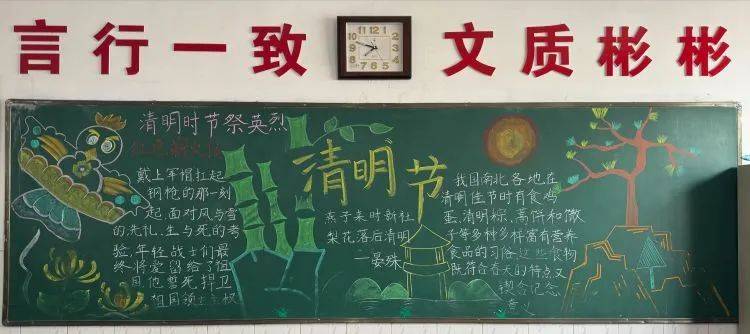 言行一致
文质彬彬
清明时节祭英烈
戴上军帽扛起
钢枪的那一刻
起,面对风与雪
的洗礼,生与死的考
验,年轻战士们最
终将爱留给了祖
国他誓死捍卫
祖国领土主权
清明节
燕子来时新社
梨花落后清明
—晏殊
我国南北各地在
清明佳节时有食鸡
蛋、清明粽、高饼和馓
子等多种多样富有营养
食品的习俗这些食物
既符合春天的特点又
契合纪念
意义